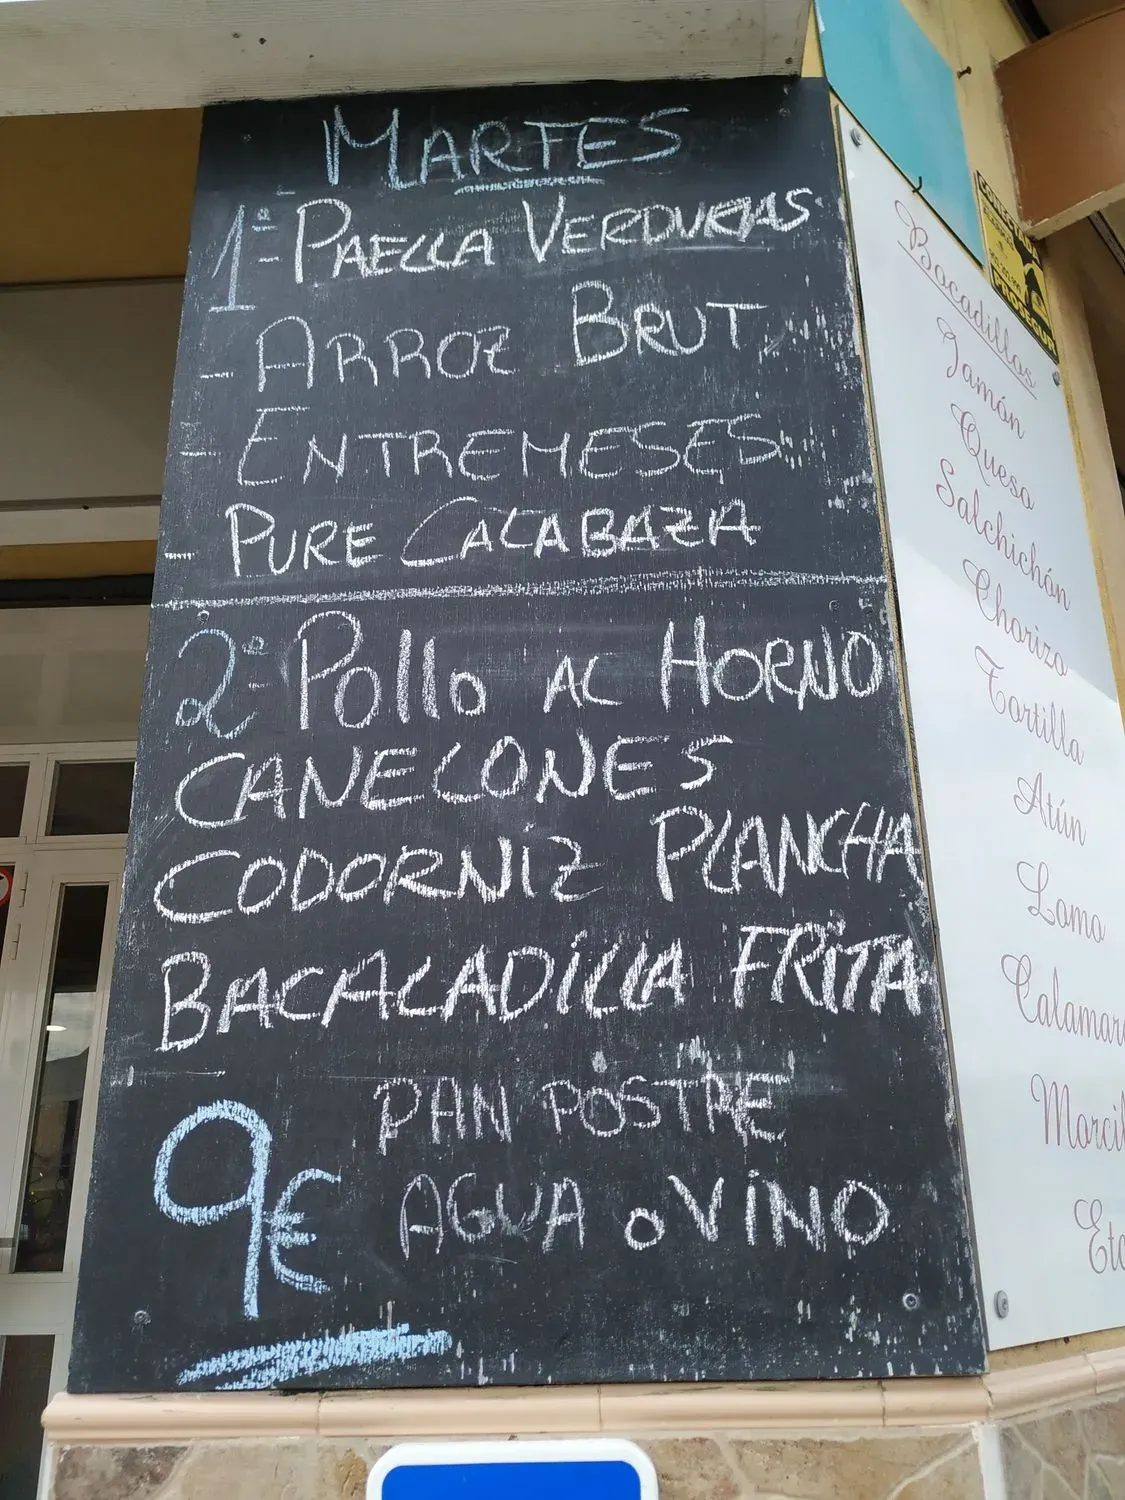 MARTES
1º= PAELLA VERDURAS
- ARROZ BRUT
- ENTREMESES
- PURE CALABAZA
2º= Pollo AL HORNO
CANELONES
CODORNiZ PLANCHA
BACALADiLLA FRiTA
PAN POSTRE
9€ AGUA o ViNO
Bocadillos
Jamón
Queso
Salchichón
Chorizo
Tortilla
Atún
Lomo
Calamar
Morcil
Etc
PROSEGUR